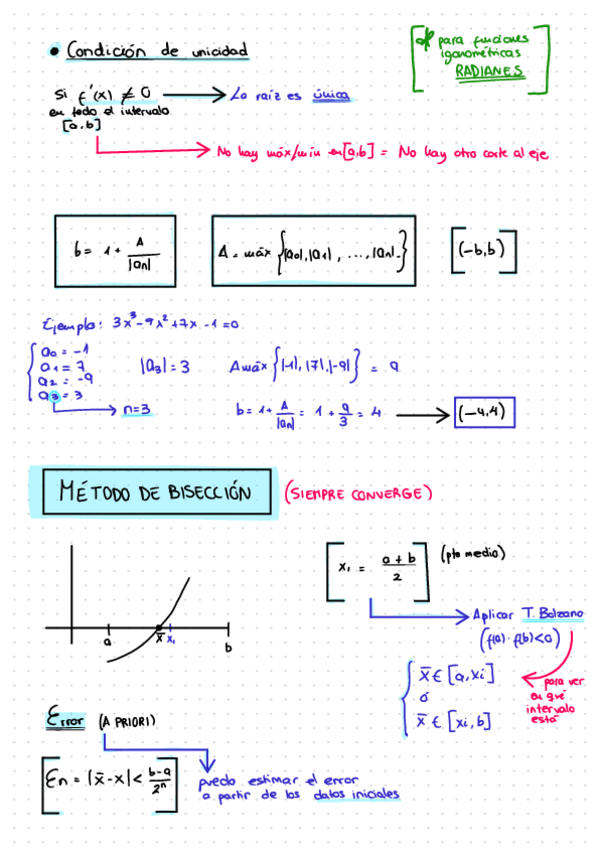 • Condición de unicidad
* para funciones
igonométricas
RADIANES
Si f'(x) ≠ 0 → La raíz es única
en todo el intervalo
[a,b]
No hay máx/mín en [a,b] = No hay otro corte al eje
b = 1 + A/|an|
A = máx {|a0|, |a1|, ..., |an|.}
(-b,b)
Ejemplo: 3x³-9x²+7x-1=0
a0 = -1
a1 = 7
a2 = -9
a3 = 3
|a3| = 3
A máx {|-1|, |7|, |-9|} = 9
n=3
b = 1 + A/|an| = 1 + 9/3 = 4 → (-4,4)
MÉTODO DE BISECCIÓN (SIEMPRE CONVERGE)
x1 = a+b/2 (pto medio)
a x̄ x1 b
Aplicar T. Bolzano
(f(a)·f(b)<0)
x̄ ∈ [a,xi]
ó
x̄ ∈ [xi,b]
para ver
en qué
intervalo
está
Error (A PRIORI)
En = |x̄-x| < b-a/2ⁿ
puedo estimar el error
a partir de los datos iniciales